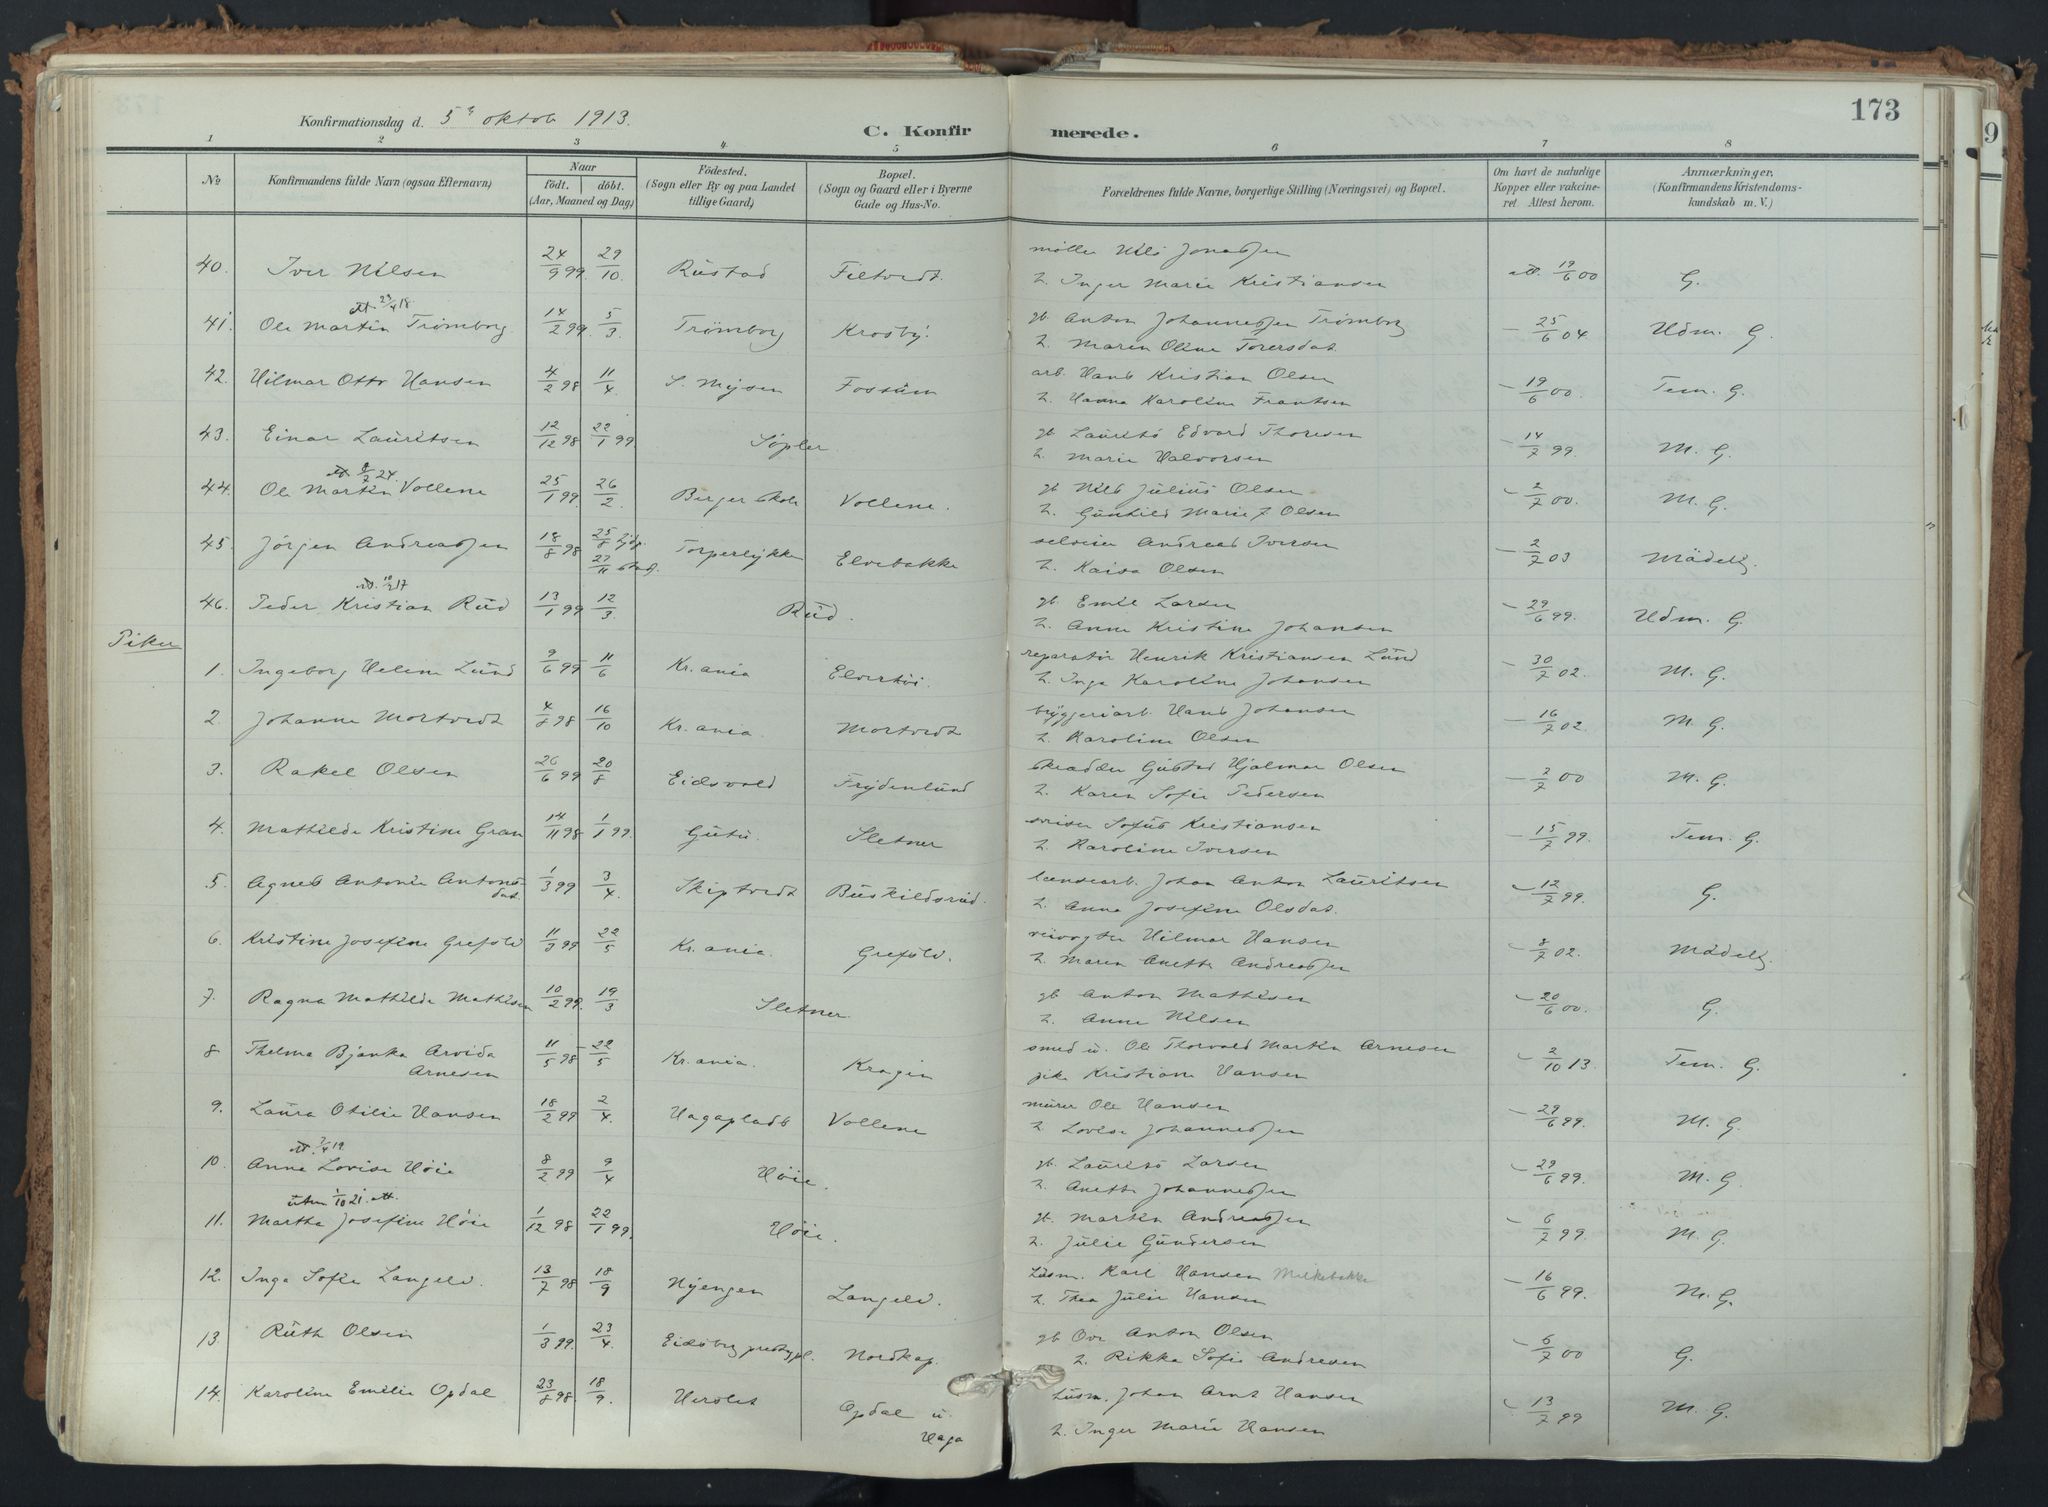 173
Konfirmationsdag d. 5te oktob 1913.
C. Konfirmerede.
1 2 3 4 5 6 7 8
No Konfirmandens fulde Navn (ogsaa Efternavn) Naar födt. döbt. (Aar, Maaned og Dag) Födested. (Sogn eller By og paa Landet tillige Gaard) Bopæl. (Sogn og Gaard eller i Byerne Gade og Hus-No. Forældrenes fulde Navne, borgerlige Stilling (Næringsvei) og Bopæl. Om havt de naturlige Kopper eller vakcineret. Attest herom. Anmærkninger. (Konfirmandens Kristendomskundskab m. V.)
40. Iver Nilsen 24/9 99 29/10 Rustad Filtvedt. møller Nils Jonassen
h. Inger Marie Kristiansen att. 19/6 00 G.
att. 23/4 18.
41. Ole Martin Trömborg 14/2 99. 5/3 Trömborg Krosby. gb. Anton Johannessen Trömborg
h. Maren Oline Torersdat. – 25/6 04. Udm. G.
42. Hilmar Otto Hansen 4/2 98 11/4 S. Mysen Fossum arb. Hans Kristian Olsen
h. Hanna Karoline Frantsen – 19/6 00. Tem. G.
43. Einar Lauritsen 12/12 98 22/1 99. Söpler. gb. Laurits Edvard Thoresen
h. Marie Halvorsen – 14/7 99. M. G.
44. Ole Martin Vollene 25/1 99. 26/2 Berger skole Vollene. gb. Nils Julius Olsen
h. Gunhild Marie J Olsen – 2/7 00. M. G.
45. Jörgen Andreassen 18/8 98 25/8 hjdp. 27/11 stadf. Torperlykke Elvebakke selveier Andreas Iversen
h. Kaisa Olsen – 2/7 03 Mådelig.
att. 10/2 17
46. Peder Kristian Rud 13/1 99 12/3 Rud. gb. Emil Larsen
h. Anne Kristine Johansen – 29/6 99. Udm. G.
Piker
1. Ingeborg Helene Lund 9/6 99 11/6 Kr.ania Elverhöi. reparatör Henrik Kristiansen Lund
h. Inga Karoline Johansen – 30/7 02. M. G.
2. Johanne Mortvedt 4/8 98 16/10 Kr.ania. Mortvedt bryggeriarb. Hans Johansen
h. Karoline Olsen – 16/7 02. M. G.
3. Rakel Olsen 26/6 99 20/8 Eidsvold Frydenlund skrædder Gustav Hjalmar Olsen
h. Karen Sofie Pedersen – 2/7 00 M. G.
4. Mathilde Kristine Gran 14/11 98 1/1 99. Gutu. Sletner sveiser Sofus Kristiansen
h. Karoline Iversen – 15/7 99. Tem. G.
5. Agnes Antonie Antonsdat. 1/3 99 3/4 Skiptvedt Buskildsrud. lænsearb. Johan Anton Lauritsen
h. Anna Josefine Olsdat. – 12/7 99. G.
6. Kristine Josefine Grefslí 11/3 99 22/5 Kr.ania. Grefsli. veivogter Hilmar Hansen
h. Maren Anette Andreassen – 8/7 02. Mådelig.
7. Ragna Mathilde Mathisen 10/2 99. 19/3 Sletner. gb. Anton Mathisen
h. Anne Nilsen – 20/6 00. G.
8 Thelma Bjanka Arvida Arnesen 11/5 98 22/5 Kr.ania. Kragin smed u. Ole Thorvald Martin Arnesen
pike Kristiane Hansen – 2/10 13. Tem. G.
9. Laura Otilie Hansen 18/2 99 2/4 Hagaplads Vollene murer Ole Hansen
h. Lovise Johannessen – 29/6 99. M. G.
att. 7/4 19
10. Anna Lovise Höie 8/2 99 9/4 Höie. gb. Laurits Larsen
h. Anette Johannessen – 29/6 99. M. G.
uten 1/10 21. att.
11. Martha Josefine Höie 1/12 98 22/1 99. Höie. gb. Martin Andreassen
h. Julie Gundersen – 6/7 99. M. G.
12. Inga Sofie Langeli. 13/7 98 18/9 Nyengen Langeli. Husm. Karl Hansen
h. Thea Julie Hansen – 16/6 99. M. G.
13. Ruth Olsen 1/3 99. 23/4 Eidsberg prestegpl. Nordkap. gb Ove Anton Olsen
h. Rikka Sofie Andresen – 6/7 00 G.
14. Karoline Emilie Opdal 23/8 98. 18/9. Herslet Opdal u. Haga Husm. Johan Arnt Hansen
h. Inger Marie Hansen – 13/7 99 M. G.